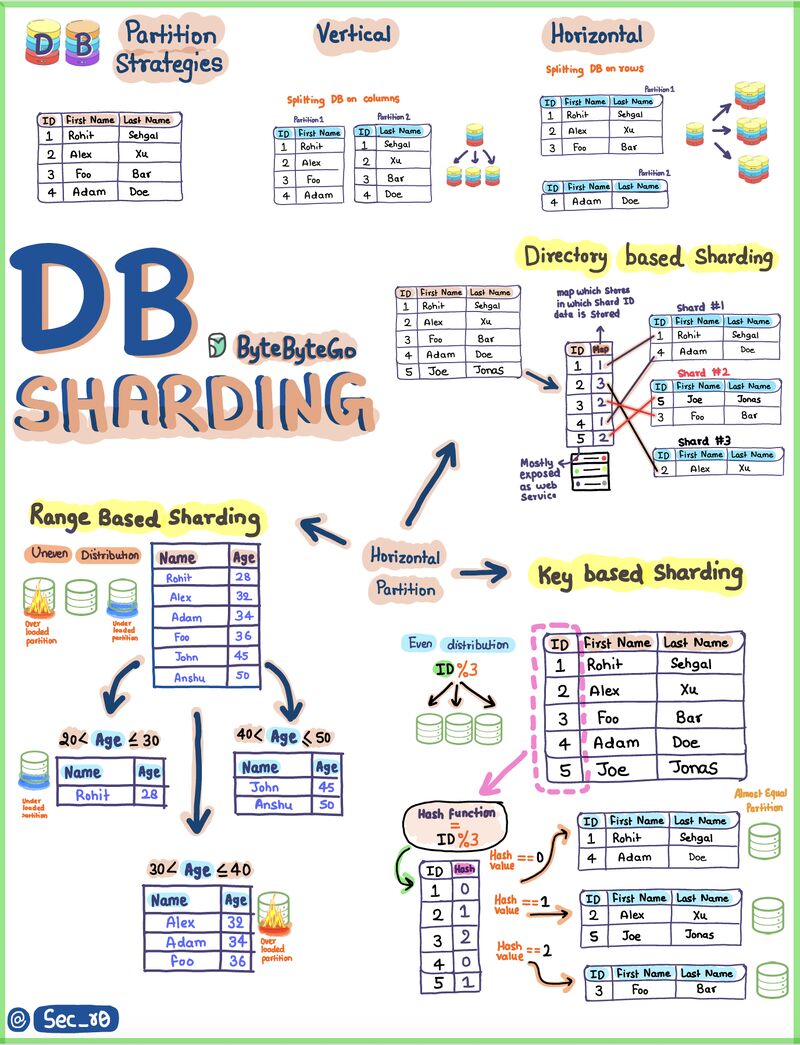 DB
Partition
Strategies
Vertical
Horizontal
Splitting DB on columns
Splitting DB on rows
ID First Name Last Name
1 Rohit Sehgal
2 Alex Xu
3 Foo Bar
4 Adam Doe
Partition 1
ID First Name
1 Rohit
2 Alex
3 Foo
4 Adam
Partition 2
ID Last Name
1 Sehgal
2 Xu
3 Bar
4 Doe
Partition 1
ID First Name Last Name
1 Rohit Sehgal
2 Alex Xu
3 Foo Bar
Partition 2
ID First Name Last Name
4 Adam Doe
DB
SHARDING
ByteByteGo
Directory based Sharding
ID First Name Last Name
1 Rohit Sehgal
2 Alex Xu
3 Foo Bar
4 Adam Doe
5 Joe Jonas
map which Stores
in which Shard ID
data is Stored
ID Map
1 1
2 3
3 2
4 1
5 2
Mostly
exposed
as web
Service
Shard #1
ID First Name Last Name
1 Rohit Sehgal
4 Adam Doe
Shard #2
ID First Name Last Name
5 Joe Jonas
3 Foo Bar
Shard #3
ID First Name Last Name
2 Alex Xu
Horizontal
Partition
Range Based Sharding
Uneven Distribution
Over
loaded
partition
Under
loaded
partition
Name Age
Rohit 28
Alex 32
Adam 34
Foo 36
John 45
Anshu 50
20< Age ≤30
Name Age
Rohit 28
Under
loaded
partition
40< Age ≤50
Name Age
John 45
Anshu 50
30< Age ≤40
Name Age
Alex 32
Adam 34
Foo 36
Over
loaded
partition
Key based Sharding
Even distribution
ID%3
ID First Name Last Name
1 Rohit Sehgal
2 Alex Xu
3 Foo Bar
4 Adam Doe
5 Joe Jonas
Hash Function
=
ID%3
ID Hash
1 0
2 1
3 2
4 0
5 1
Almost Equal
Partition
Hash
value == 0
ID First Name Last Name
1 Rohit Sehgal
4 Adam Doe
Hash
value == 1
ID First Name Last Name
2 Alex Xu
5 Joe Jonas
Hash
value == 2
ID First Name Last Name
3 Foo Bar
@ Sec_r0